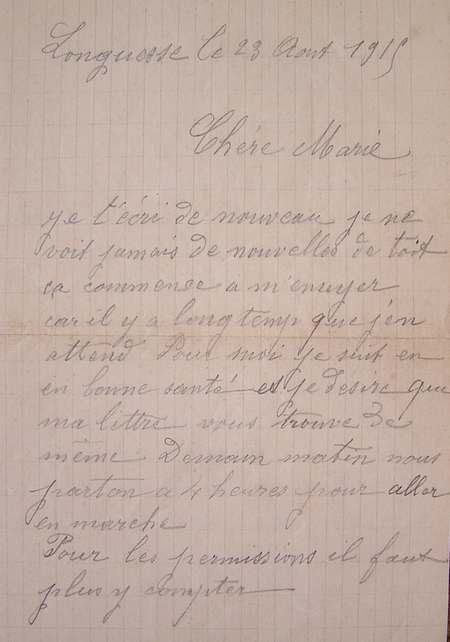 Longuesse le 23 Aout 1915
Chére Marie
je t'écri de nouveau je ne
voit jamais de nouvelles de toit
ca commense a m'enuyer
car il y a long temp que j'en
attend Pour moi je suit en
en bonne santé et je desire que
ma littre vous trouve de
même Demain matin nous
parton a 4 heures pour aller
en marche
Pour les permissions il faut
plus y compter